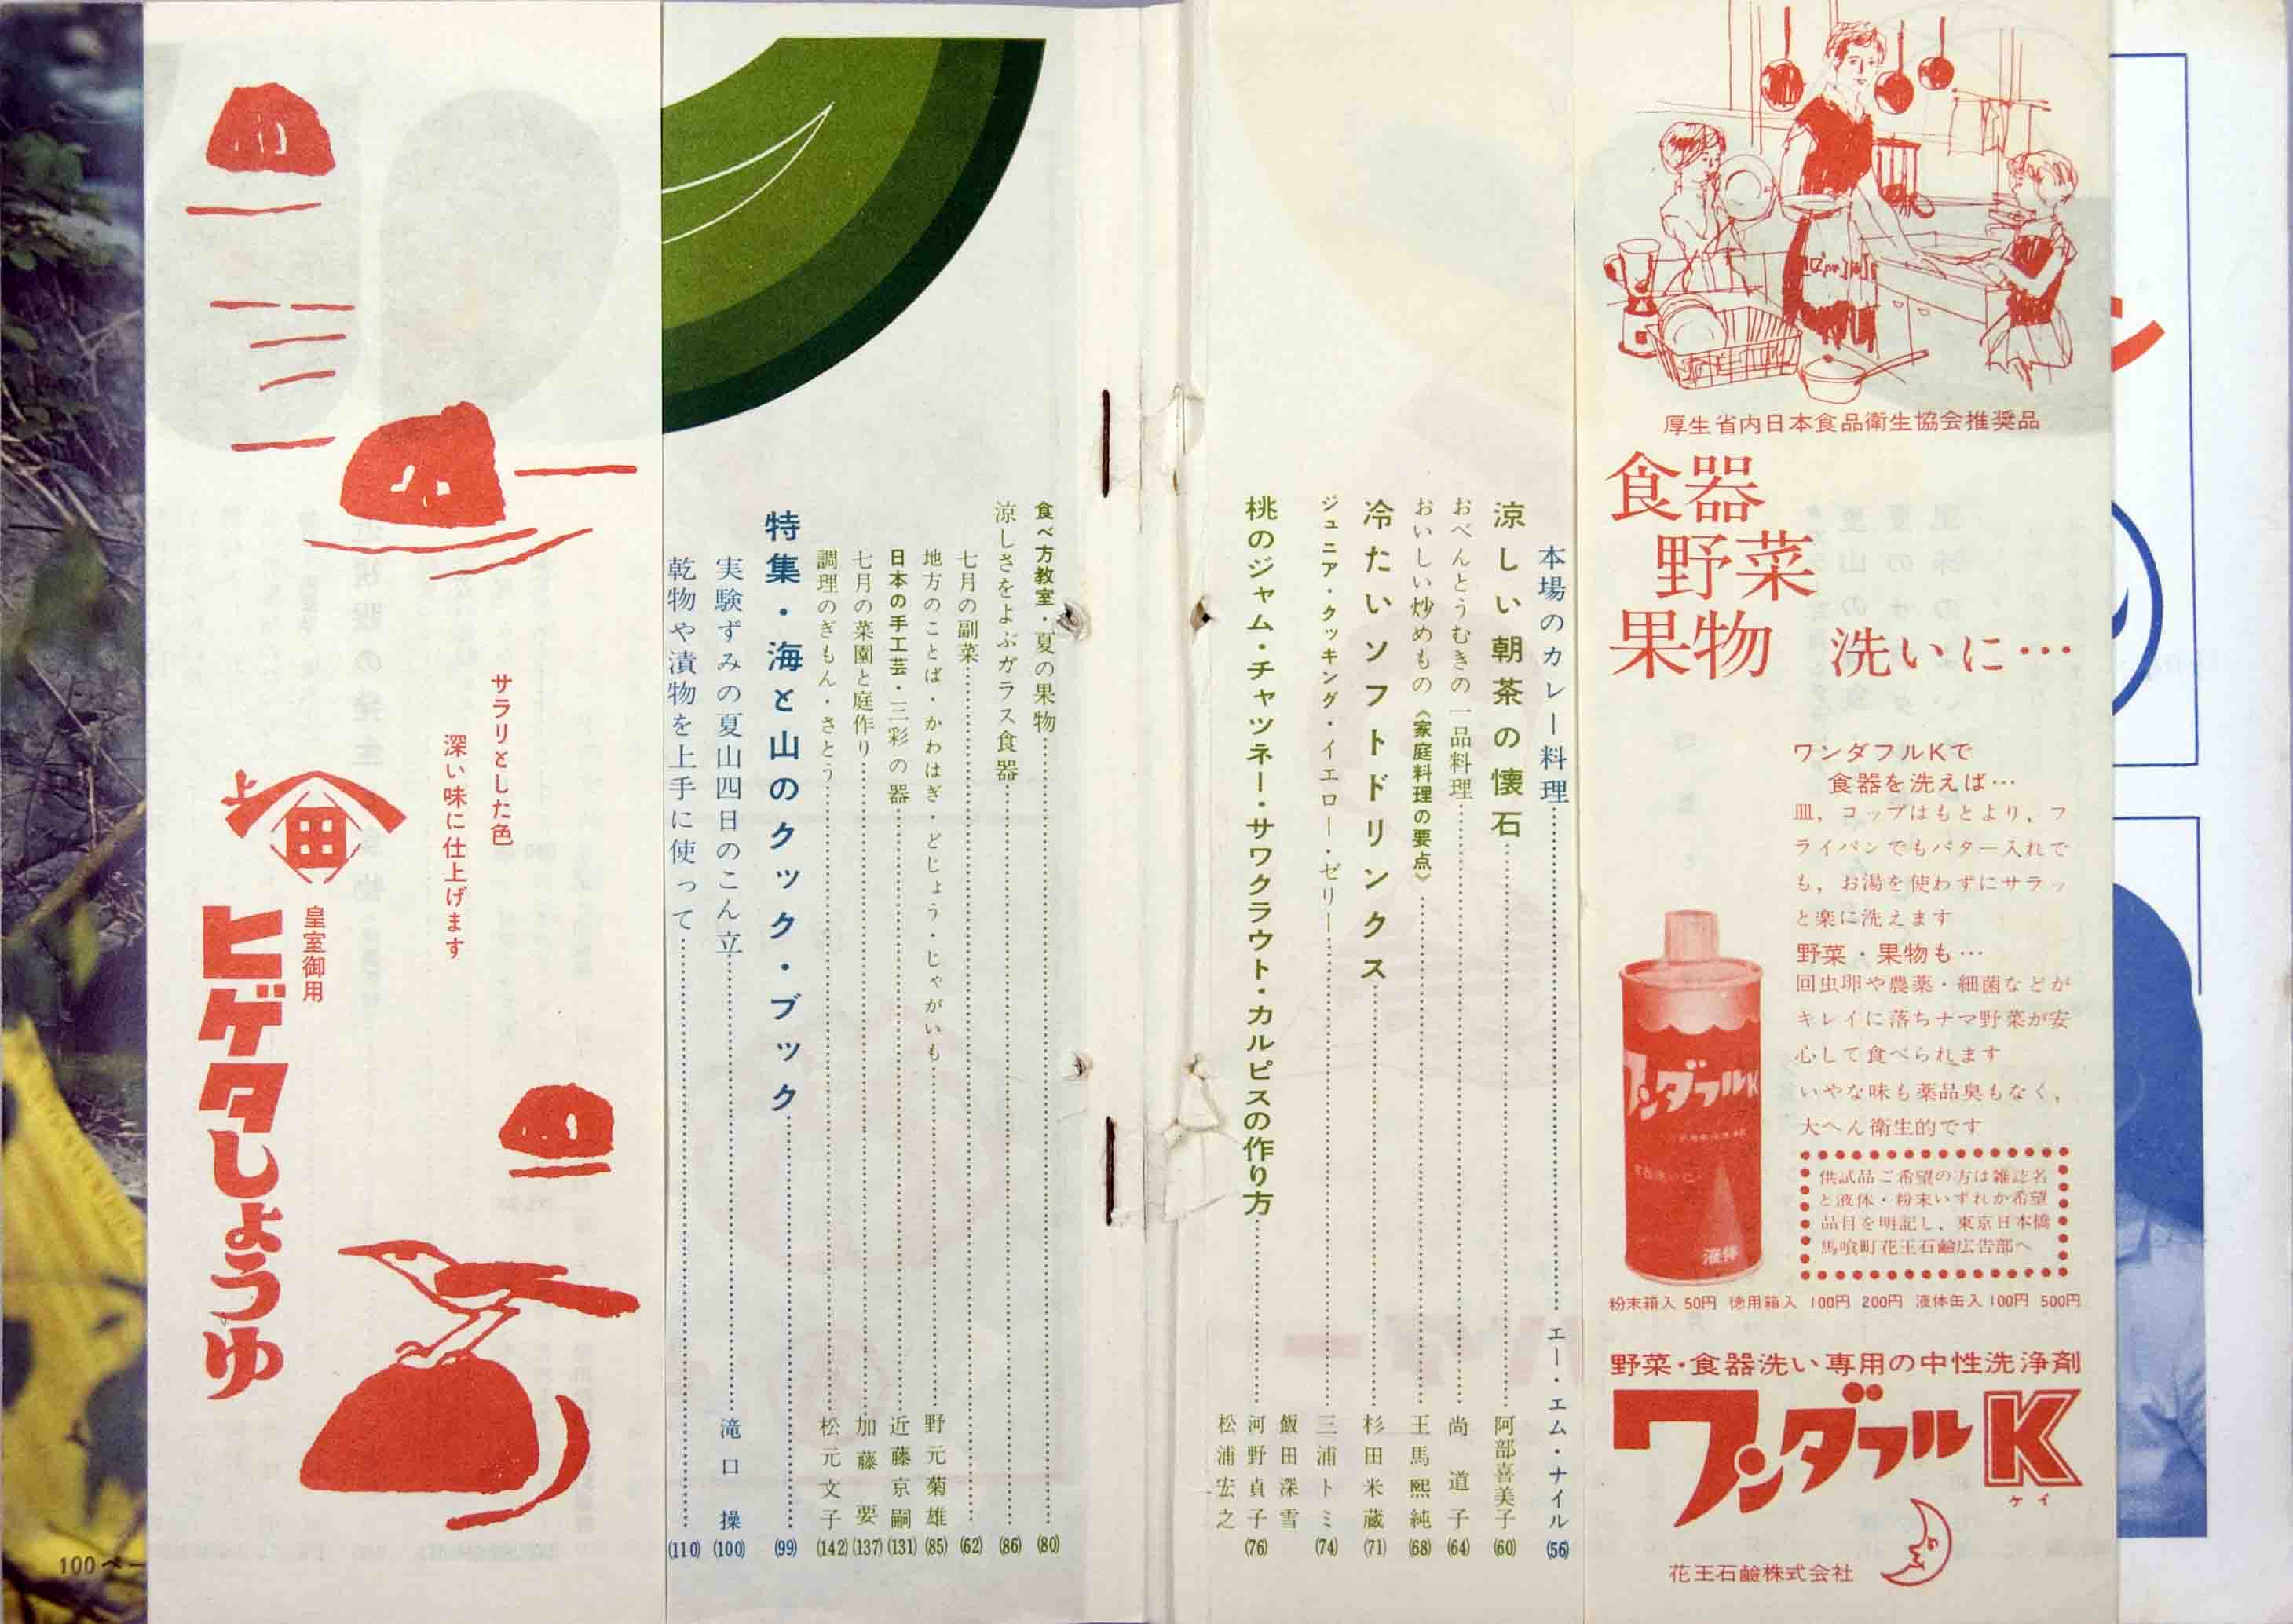 厚生省内日本食品衛生協会推奨品
食器
野菜
果物 洗いに…
ワンダフルKで
食器を洗えば…
皿，コップはもとより，フ
ライパンでもバター入れで
も，お湯を使わずにサラッ
と楽に洗えます
野菜・果物も…
回虫卵や農薬・細菌などが
キレイに落ちナマ野菜が安
心して食べられます
いやな味も薬品臭もなく，
大へん衛生的です
供試品ご希望の方は雑誌名
と液体・粉末いずれか希望
品目を明記し，東京日本橋
馬喰町花王石鹼広告部へ
ワンダフルK
液体
粉末箱入 50円 徳用箱入 100円 200円 液体缶入 100円 500円
野菜・食器洗い専用の中性洗浄剤
ワンダフルK
ケイ
花王石鹼株式会社
本場のカレー料理 エー・エム・ナイル (56)
涼しい朝茶の懐石 阿部喜美子 (60)
おべんとうむきの一品料理 尚道子 (64)
おいしい炒めもの《家庭料理の要点》 王馬熙純 (68)
冷たいソフトドリンクス 杉田米蔵 (71)
ジュニア・クッキング・イエロー・ゼリー 三浦トミ (74)
桃のジャム・チャツネー・サワクラウト・カルピスの作り方 飯田深雪
河野貞子 (76)
松浦宏之
食べ方教室・夏の果物 (80)
涼しさをよぶガラス食器 (86)
七月の副菜 (62)
地方のことば・かわはぎ・どじょう・じゃがいも 野元菊雄 (85)
日本の手工芸・三彩の器 近藤京嗣 (131)
七月の菜園と庭作り 加藤要 (137)
調理のぎもん・さとう 松元文子 (142)
特集・海と山のクック・ブック (99)
実験ずみの夏山四日のこん立 滝口操 (100)
乾物や漬物を上手に使って (110)
サラリとした色
深い味に仕上げます
上
田
皇室御用
ヒゲタしょうゆ
100ペー